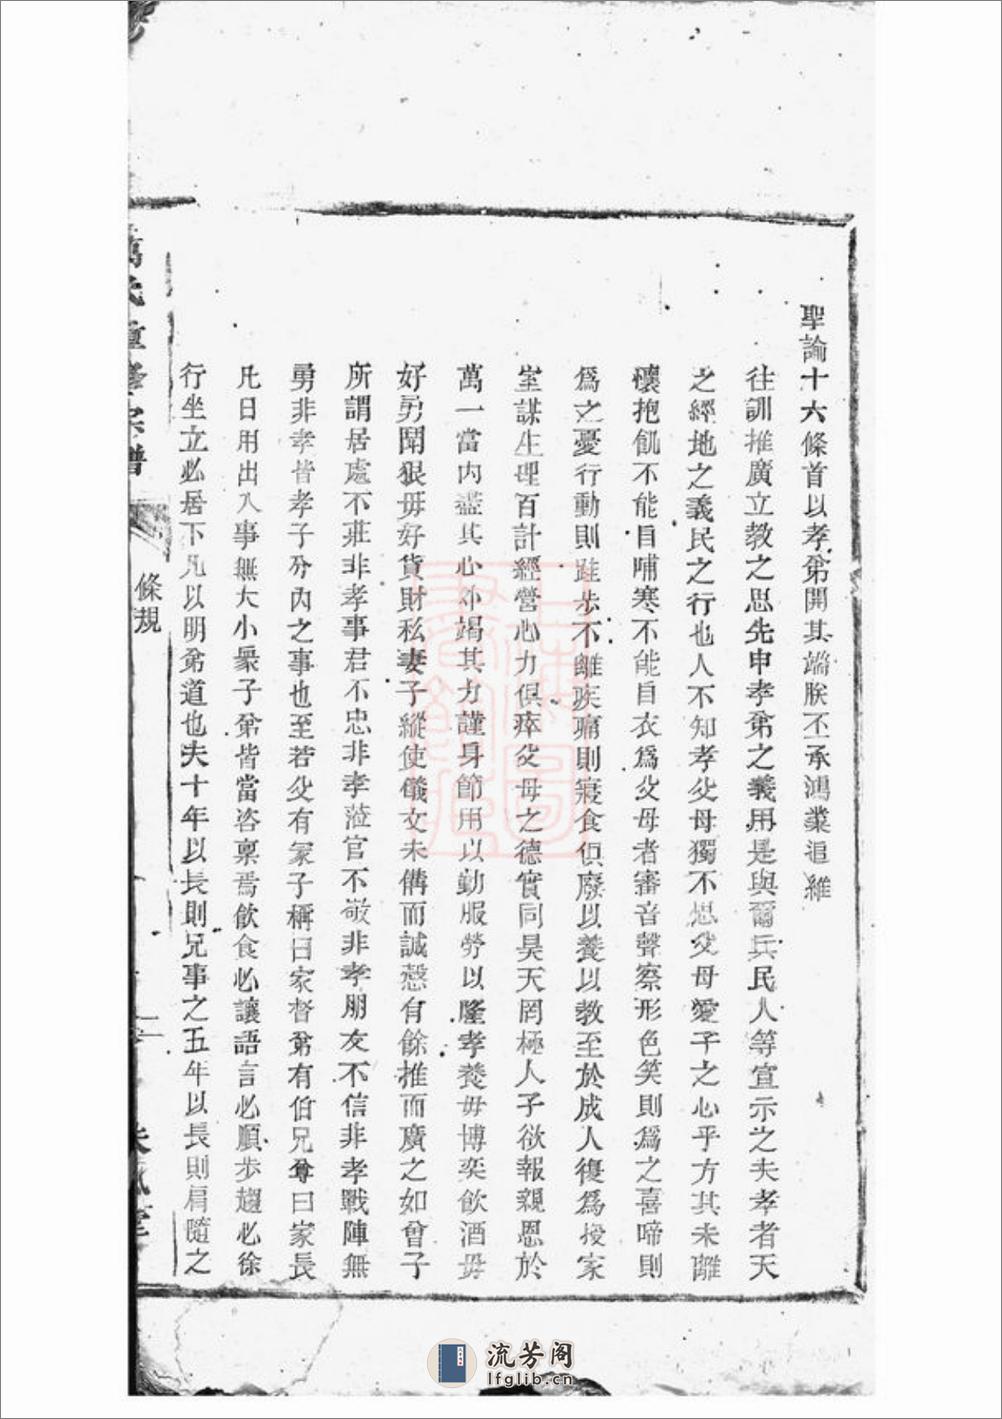 聖諭十六條首以孝弟開其端朕丕承鴻業追維
往訓推廣立教之思先申孝弟之義用是與爾兵民人等宣示之夫孝者天
之經地之義民之行也人不知孝父母獨不思父母愛子之心乎方其未離
懷抱飢不能自哺寒不能自衣爲父母者審音聲察形色笑則爲之喜啼則
爲之憂行動則跬步不離疾痛則寢食俱廢以養以教至於成人復爲授家
室謀生理百計經營心力俱瘁父母之德實同昊天罔極人子欲報親恩於
萬一當內盡其心外竭其力謹身節用以勤服勞以隆孝養毋博奕飲酒毋
好勇鬪狠毋好貨財私妻子縱使儀文未備而誠慤有餘推而廣之如曾子
所謂居處不莊非孝事君不忠非孝蒞官不敬非孝朋友不信非孝戰陣無
勇非孝皆孝子分內之事也至若父有冢子稱曰家督弟有伯兄尊曰家長
凡日用出入事無大小衆子弟皆當咨稟焉飲食必讓語言必順步趨必徐
行坐立必居下凡以明弟道也夫十年以長則兄事之五年以長則肩隨之
萬氏重修宗譜
條規
流芳阁
lfglib.cn